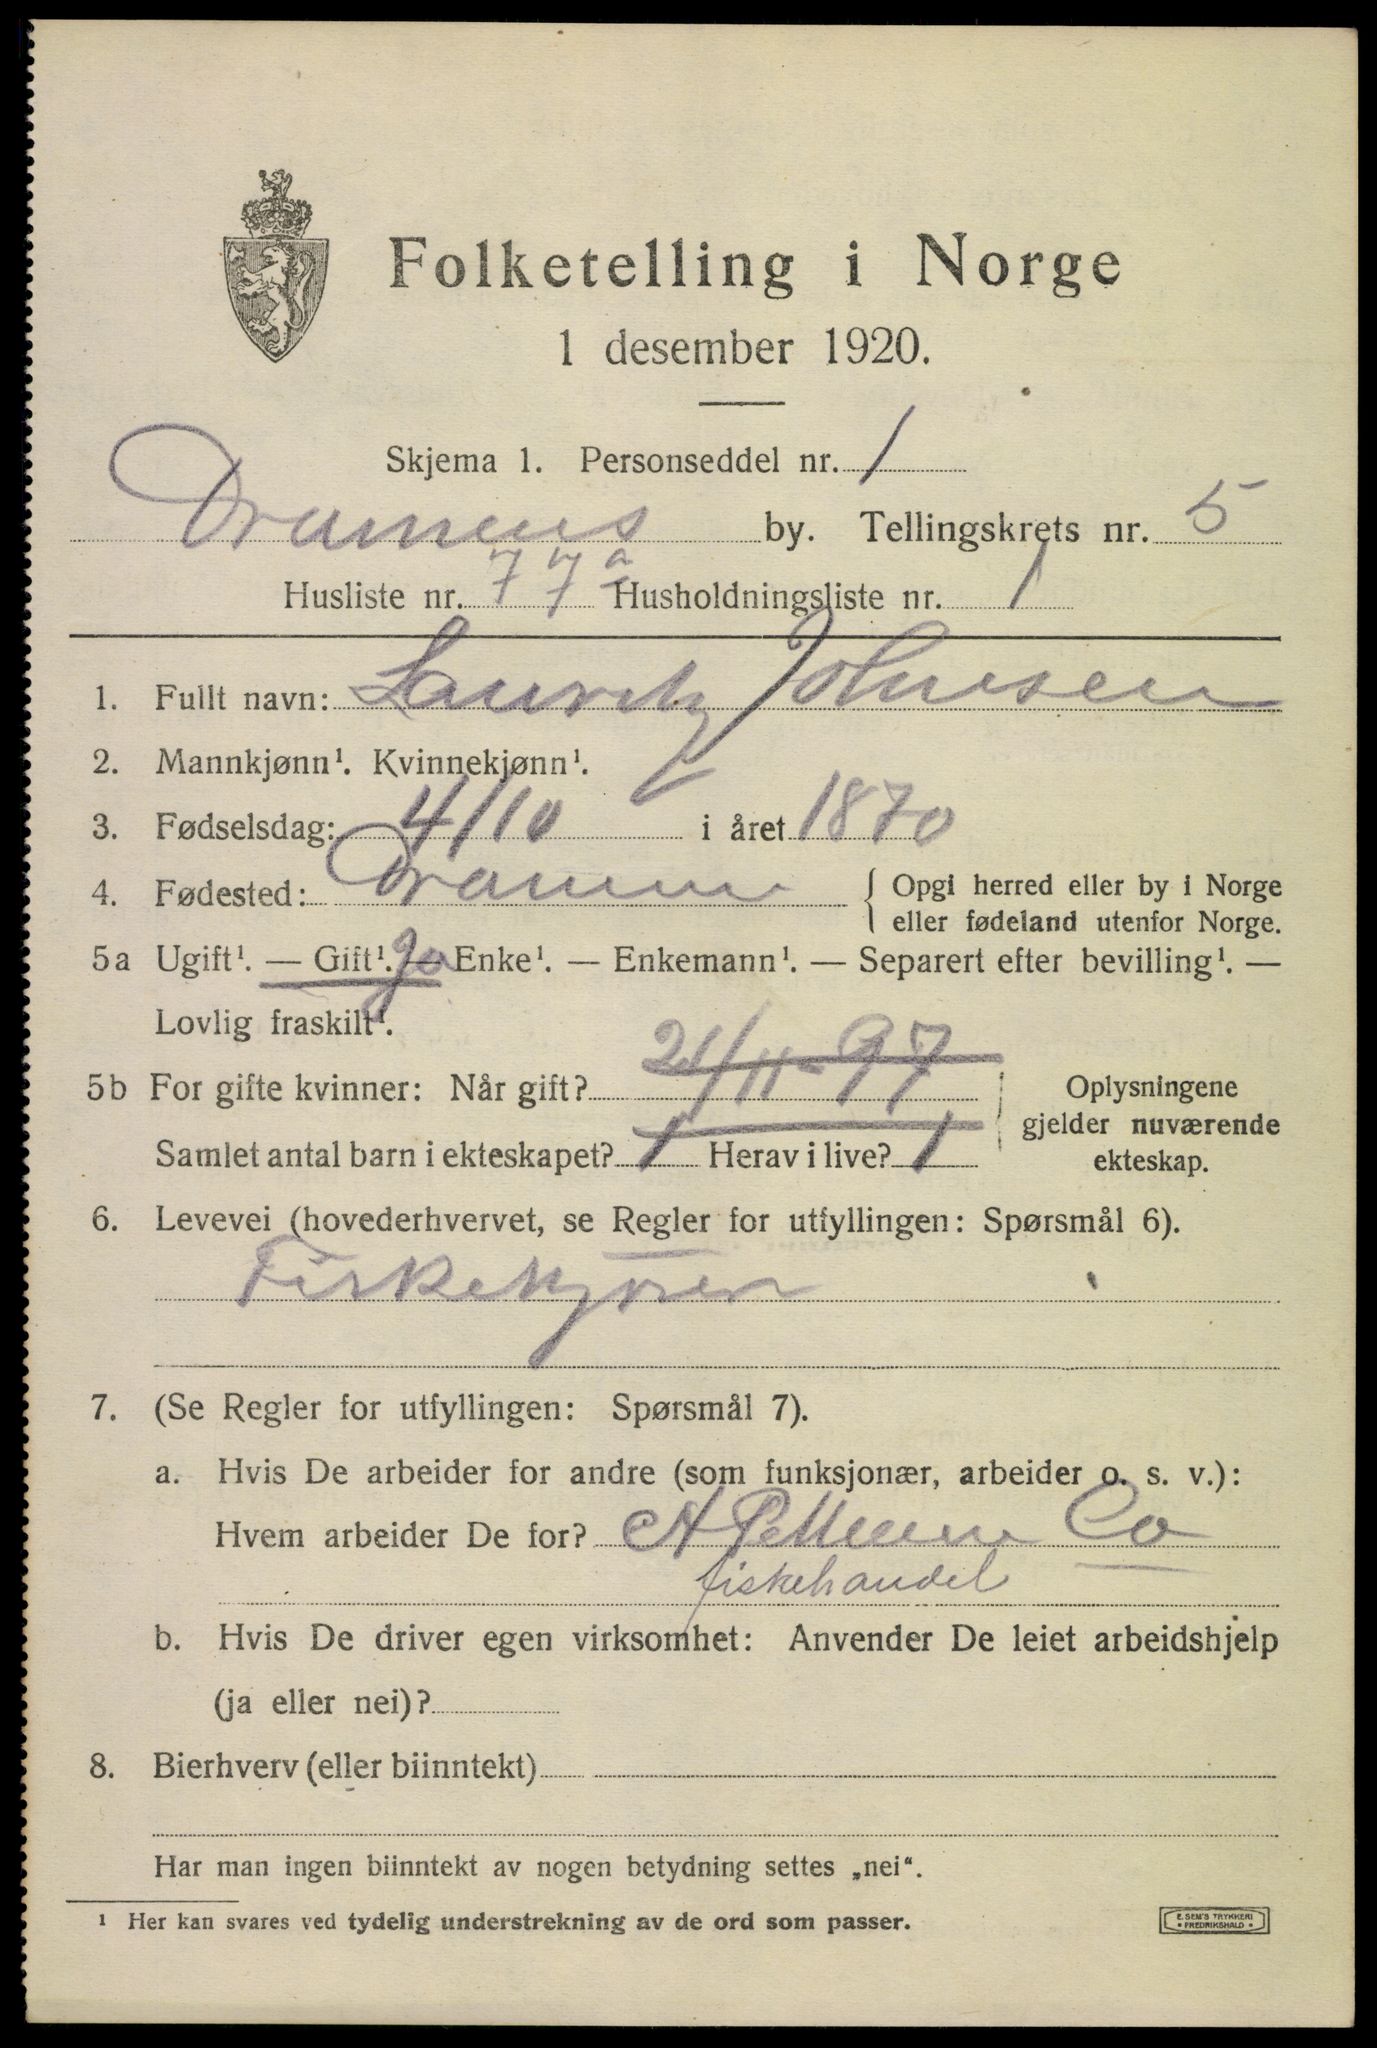 Folketelling i Norge
1 desember 1920.
Skjema 1. Personseddel nr. 1
Dramens by. Tellingskrets nr. 5
Husliste nr. 77a Husholdningsliste nr. 1
1. Fullt navn: Lauritz Johnsen
2. Mannkjønn¹. Kvinnekjønn¹.
3. Fødselsdag: 4/10 i året 1870
4. Fødested: Drammen { Opgi herred eller by i Norge
eller fødeland utenfor Norge.
5a Ugift¹. — Gift¹. ja — Enke¹. — Enkemann¹. — Separert efter bevilling¹. —
Lovlig fraskilt¹.
5b For gifte kvinner: Når gift? 21/11-97 Oplysningene
gjelder nuværende
Samlet antal barn i ekteskapet? 1 Herav i live? 1 ekteskap.
6. Levevei (hovederhvervet, se Regler for utfyllingen: Spørsmål 6).
7. (Se Regler for utfyllingen: Spørsmål 7).
a. Hvis De arbeider for andre (som funksjonær, arbeider o. s. v.):
Hvem arbeider De for? A Co
fiskehandel
b. Hvis De driver egen virksomhet: Anvender De leiet arbeidshjelp
(ja eller nei)?
8. Bierhverv (eller biinntekt)
Har man ingen biinntekt av nogen betydning settes „nei“.
¹ Her kan svares ved tydelig understrekning av de ord som passer.
E. SEM'S TRYKKERI
• FREDRIKSHALD •